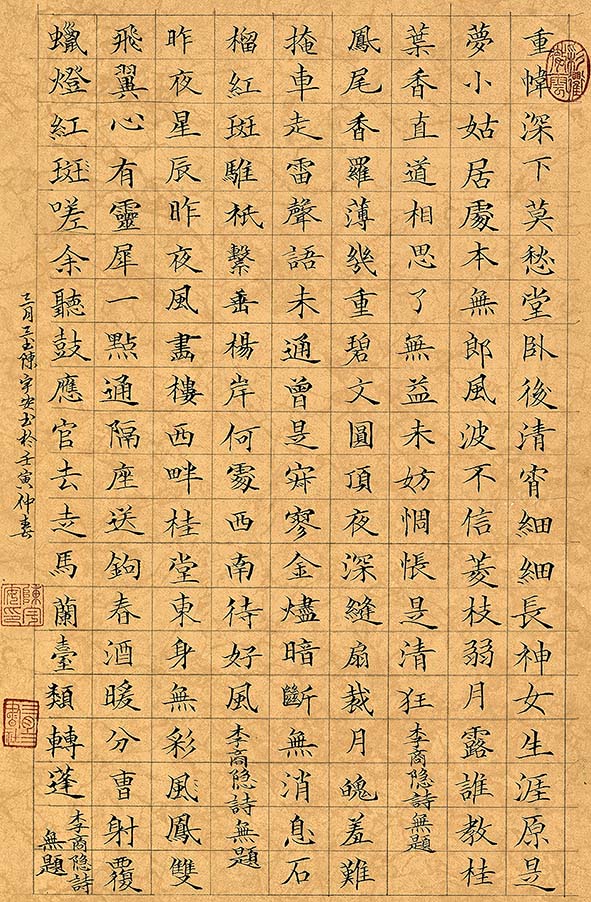 重幃深下莫愁堂臥後清宵細細長神女生涯原是
夢小姑居處本無郎風波不信菱枝弱月露誰教桂
葉香直道相思了無益未妨惆悵是清狂李商隐詩無題
鳳尾香羅薄幾重碧文圓頂夜深縫扇裁月魄羞難
掩車走雷聲語未通曾是寂寥金燼暗斷無消息石
榴紅斑騅祇繫垂楊岸何處西南待好風李商隐詩無題
昨夜星辰昨夜風畫樓西畔桂堂東身無彩風鳳雙
飛翼心有靈犀一點通隔座送鉤春酒暖分曹射覆
蠟燈紅斑嗟余聽鼓應官去走馬蘭臺類轉蓬李商隐詩
無題
陳宇安书於壬寅仲春